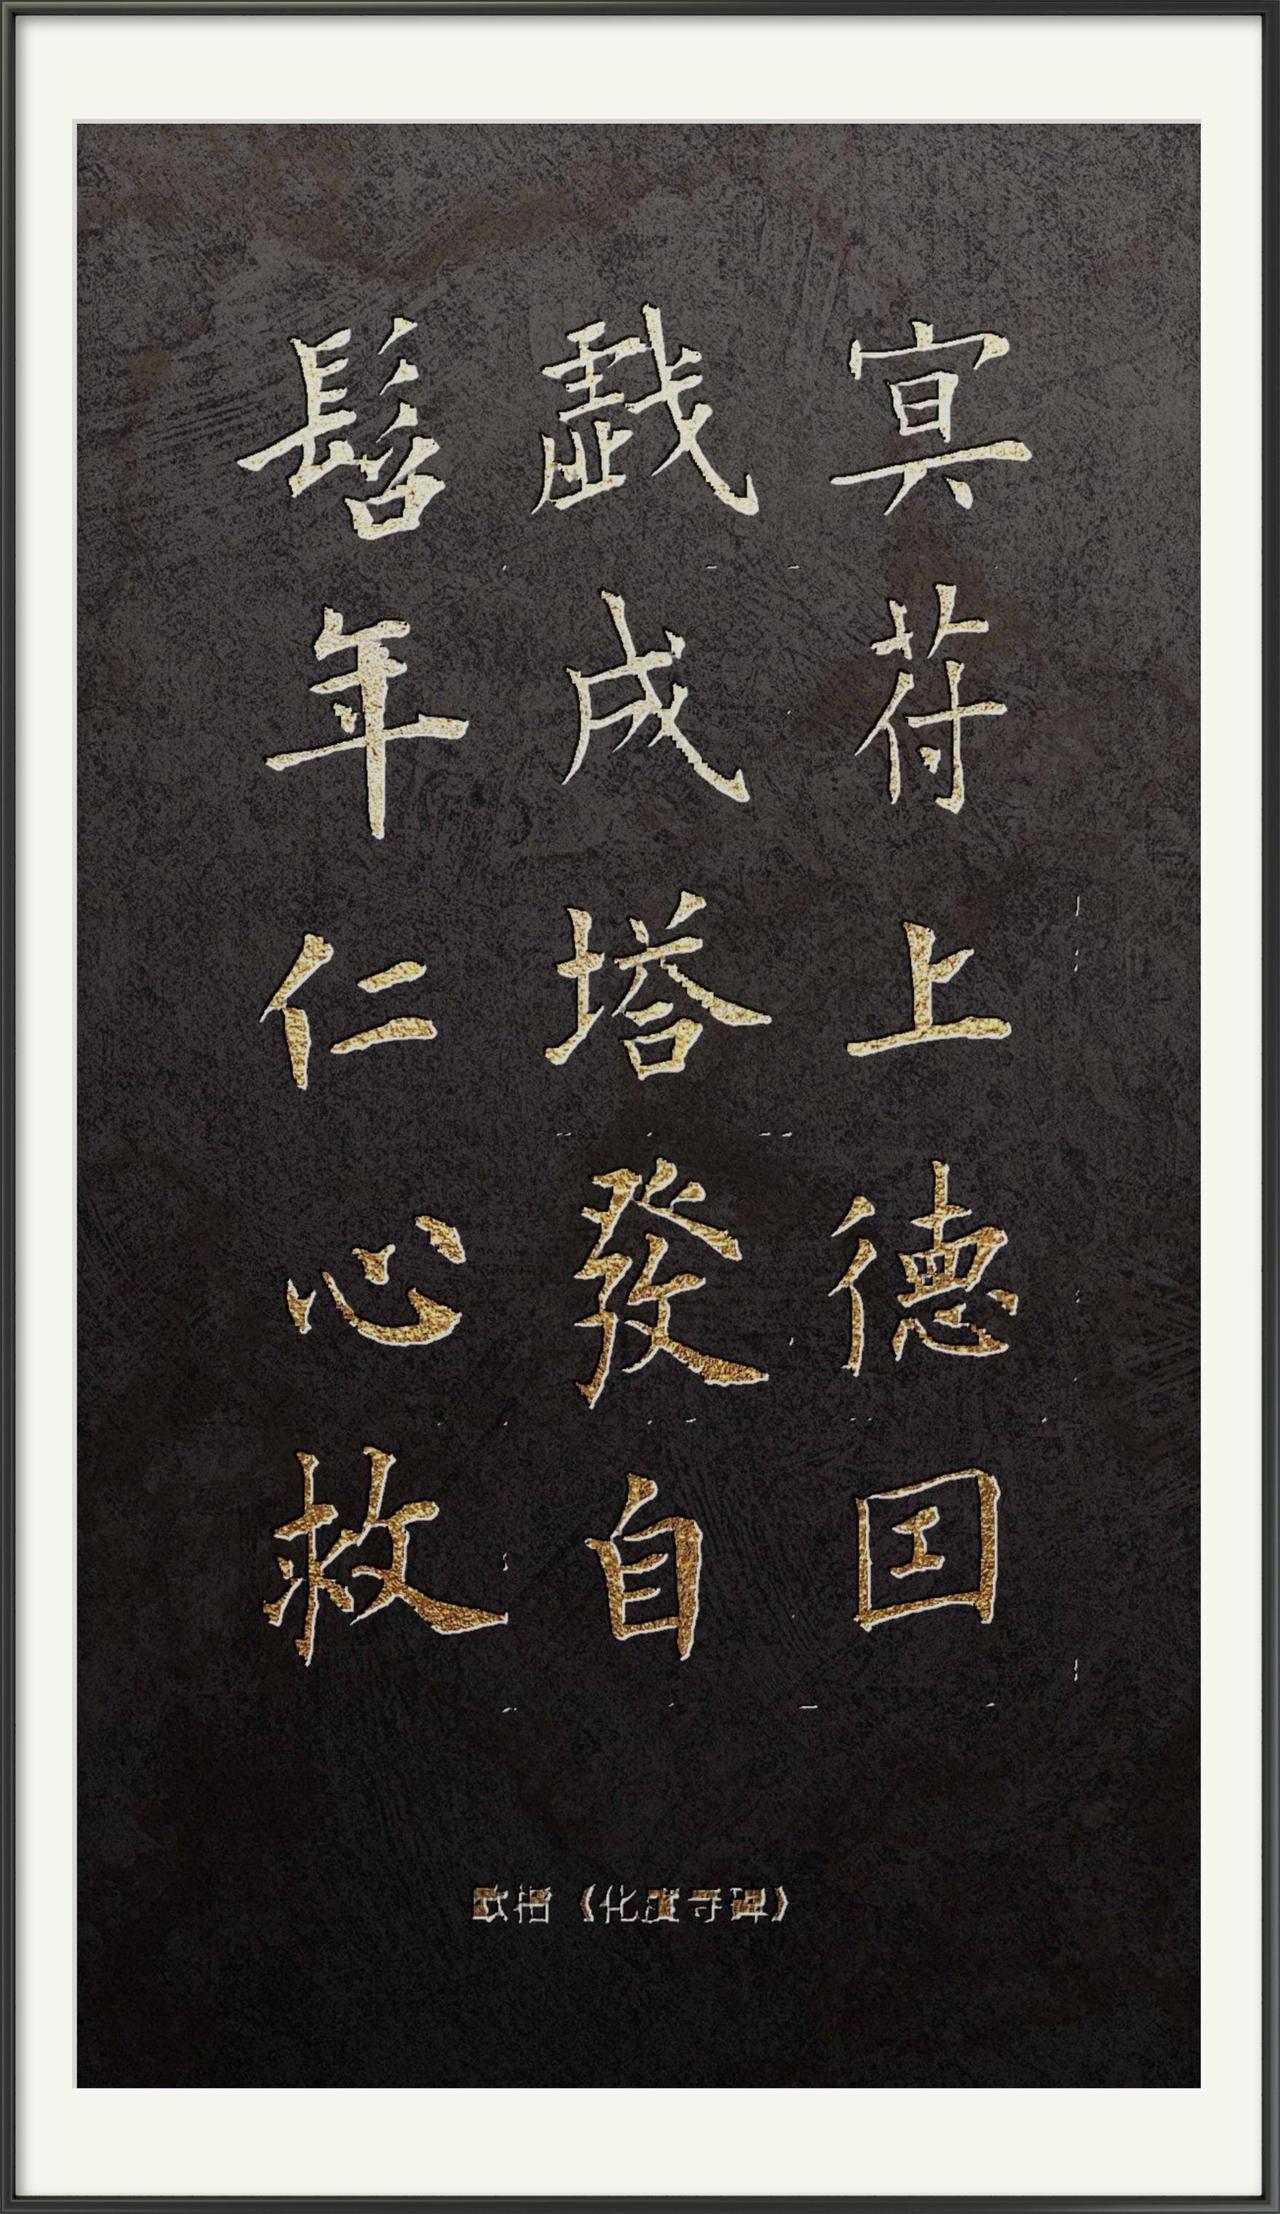 冥苻上德囙
戱成塔發自
髫年仁心救
欧楷《化度寺碑》